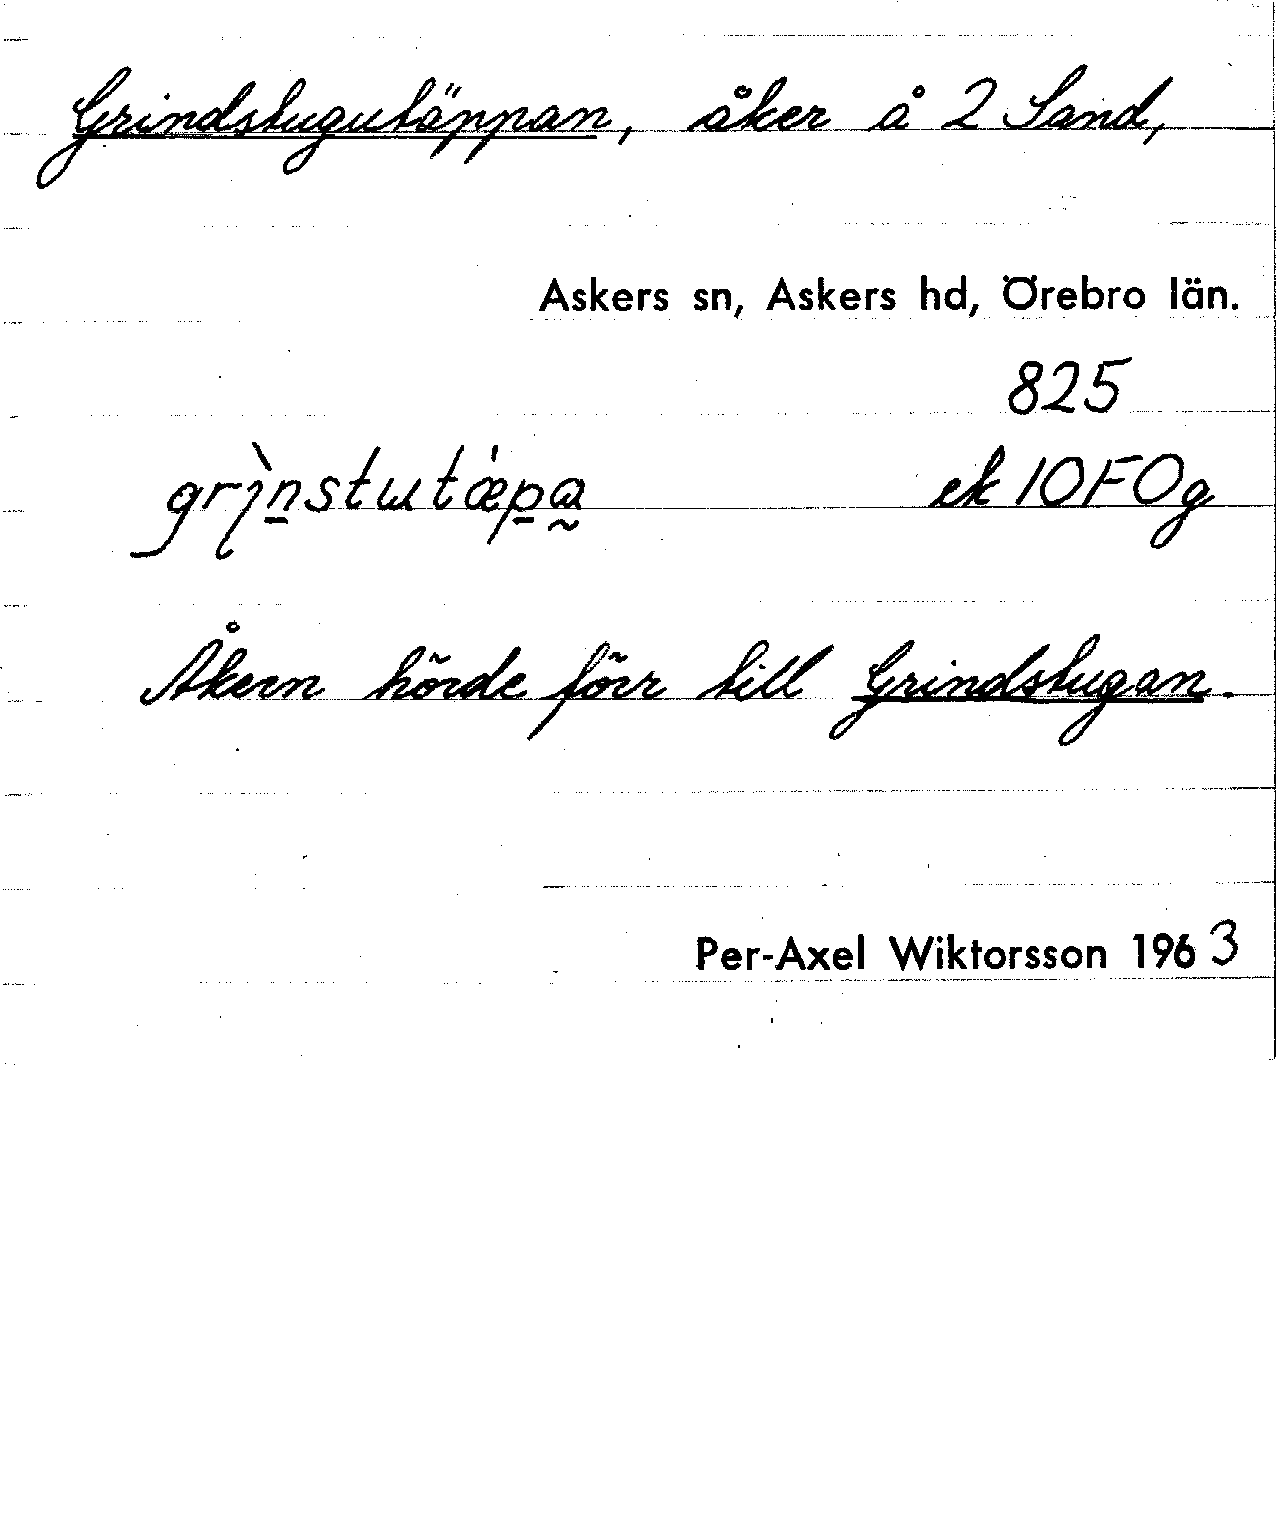 Grindstugutäppan, åker å 2 Sand,
Askers sn, Askers hd, Örebro län.
825
grı̀n̠stutǽp̠a̰ ek 10F0g
Åkern hörde förr till Grindstugan.
Per-Axel Wiktorsson 1963